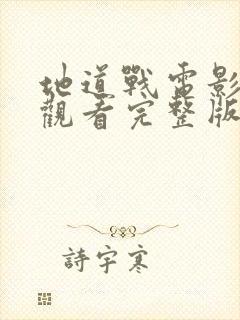 地道戰電影
觀看完整版
詩宇寒